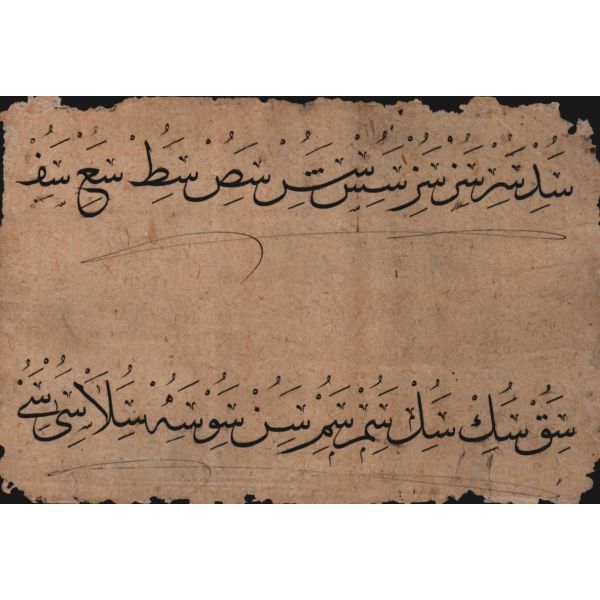 سد سر سر سر سس سس سص سط سع سف
سق سك سل سم سم سن سو سه سلا سى سى